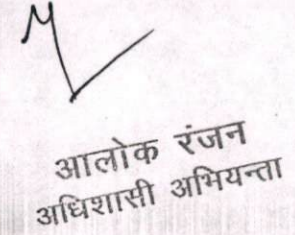 आलोक रंजन
अधिशासी अभियन्ता